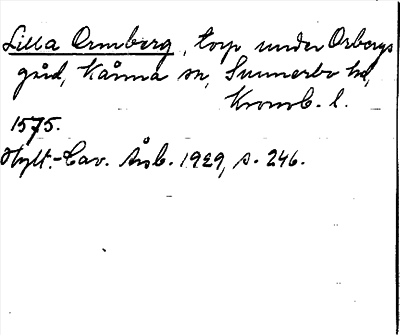 Lilla Ormberg, torp under Orbergs
gård, Kånna sn, Sunnerbo hd,
Kronob. l.
1575.
Hylt.-Cav. Årsb. 1929, s. 246.